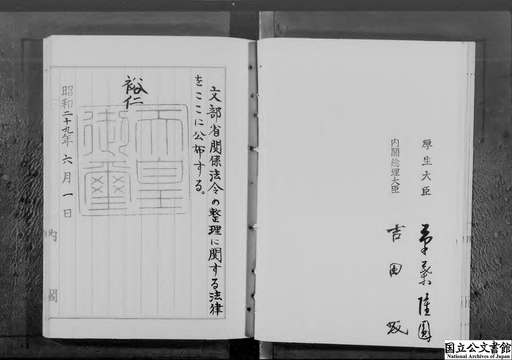 文部省関係法令の整理に関する法律
をここに公布する。
裕仁
天皇
御璽
昭和二十九年六月一日
内閣
厚生大臣
草葉隆圓
内閣総理大臣
吉田茂
国立公文書館
National Archives of Japan